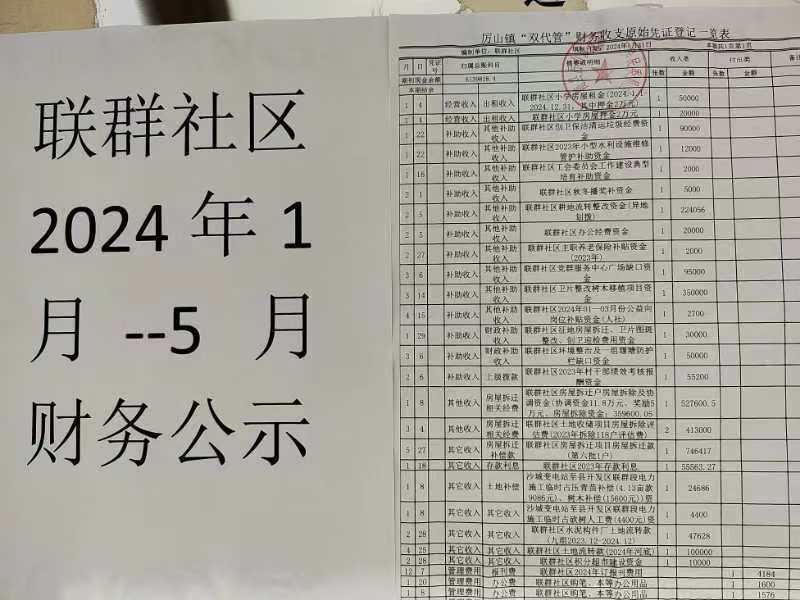 联群社区
2024年1
月--5月
财务公示
厉山镇“双代管”财务收支原始凭证登记一览表
编制单位：联群社区
月 日 凭证号 归属总账科目 摘要说明 收入类 付出类 备注
张数 金额 张数 金额
期初现金余额
本期结余
1 4 经营收入 出租收入 联群社区小学房屋租金(2024.1.1-2024.12.31,其中押金2万元) 1 50000
1 4 经营收入 出租收入 联群社区小学房屋押金2万元 1 20000
1 22 补助收入 其他补助收入 联群社区创卫保洁清运垃圾经费资金 1 90000
1 22 补助收入 其他补助收入 联群社区2023年小型水利设施维修管护补助资金 1 12000
1 16 补助收入 其他补助收入 联群社区工会委员会工作建设典型培育补助资金 1 2000
2 1 补助收入 其他补助收入 联群社区秋冬播奖补资金 1 5000
2 5 补助收入 其他补助收入 联群社区耕地流转整改资金(异地划拨) 1 224056
2 5 补助收入 其他补助收入 联群社区办公经费资金 1 20000
2 27 补助收入 其他补助收入 联群社区主职养老保险补贴资金(2023年) 1 2000
3 6 补助收入 其他补助收入 联群社区党群服务中心广场缺口资金 1 95000
3 14 补助收入 其他补助收入 联群社区卫片整改树木移植项目资金 1 350000
4 15 补助收入 其他补助收入 联群社区2024年01--03月份公益向岗位补贴资金(人社) 1 2700
1 29 补助收入 财政补助收入 联群社区征地房屋拆迁、卫片图斑整改、创卫迎检费用资金 1 30000
3 6 补助收入 财政补助收入 联群社区环境整治及一组堰塘防护栏缺口资金 1 50000
2 6 补助收入 上级拨款 联群社区2023年村干部绩效考核报酬资金 1 55200
1 8 其他收入 房屋拆迁相关经费 联群社区房屋拆迁户房屋拆除及协调资金(协调资金11.8万元、奖励5万元、房屋拆除资金:359600.05 1 527600.5
3 4 其他收入 房屋拆迁相关经费 联群社区土地收储项目房屋拆除评估费(2023年拆除118户评估费) 2 413000
5 27 其它收入 房屋拆迁补偿款 联群社区房屋拆迁项目房屋拆迁款(第六批1户) 1 746417
1 18 其它收入 存款利息 联群社区2023年存款利息 1 55563.27
1 8 其它收入 土地补偿 沙城变电站至县开发区联群段电力施工临时占压青苗补偿(4.13亩款9086元、树木补偿(15600元))资 1 24686
1 8 其它收入 其它收入 沙城变电站至县开发区联群段电力施工临时占砍树人工费(4400元)资 1 4400
2 28 其它收入 其它收入 联群社区水泥构件厂土地流转款(九组2023.12-2024.12) 1 47628
4 25 其它收入 其它收入 联群社区土地流转款(2024年河底) 1 100000
2 28 其它收入 其它收入 联群社区积分超市建设资金 1 10000
12 7 管理费用 报刊费 联群社区2024年订报刊费用 1 4184
1 20 管理费用 办公费 联群社区购笔、本等办公用品 1 1600
1 8 管理费用 办公费 联群社区购笔、本等办公用品 1 1576